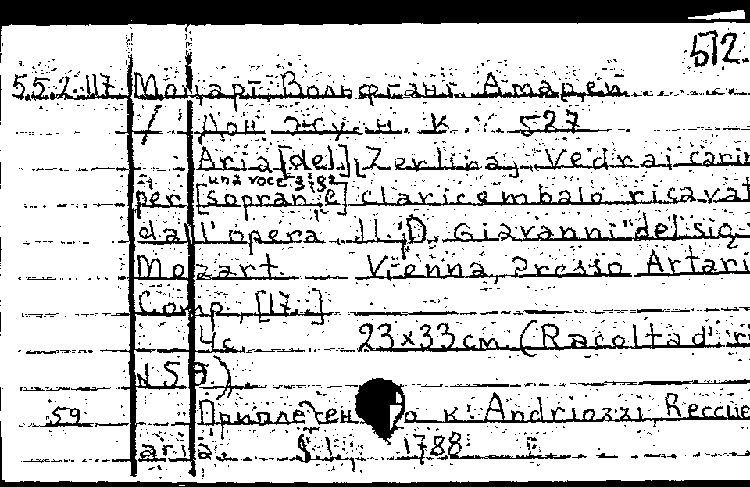 512.
552.117 Моцарт, Вольфганг Амадей
/ Дон Жуан. К. V. 527
Aria [del], Zerlina, Vedrai carin
per [una voce sopran e] claricembalo ricavat
dall'opera "Il D. Giavanni" del sig.
Mozart. Vienna, presso Artari
Comp, [17..]
4 c. 23x33 cm. (Racolta d'
N 59)
59 Приплетено к: Andriozzi, Reccue
aria. S.l., 1788.